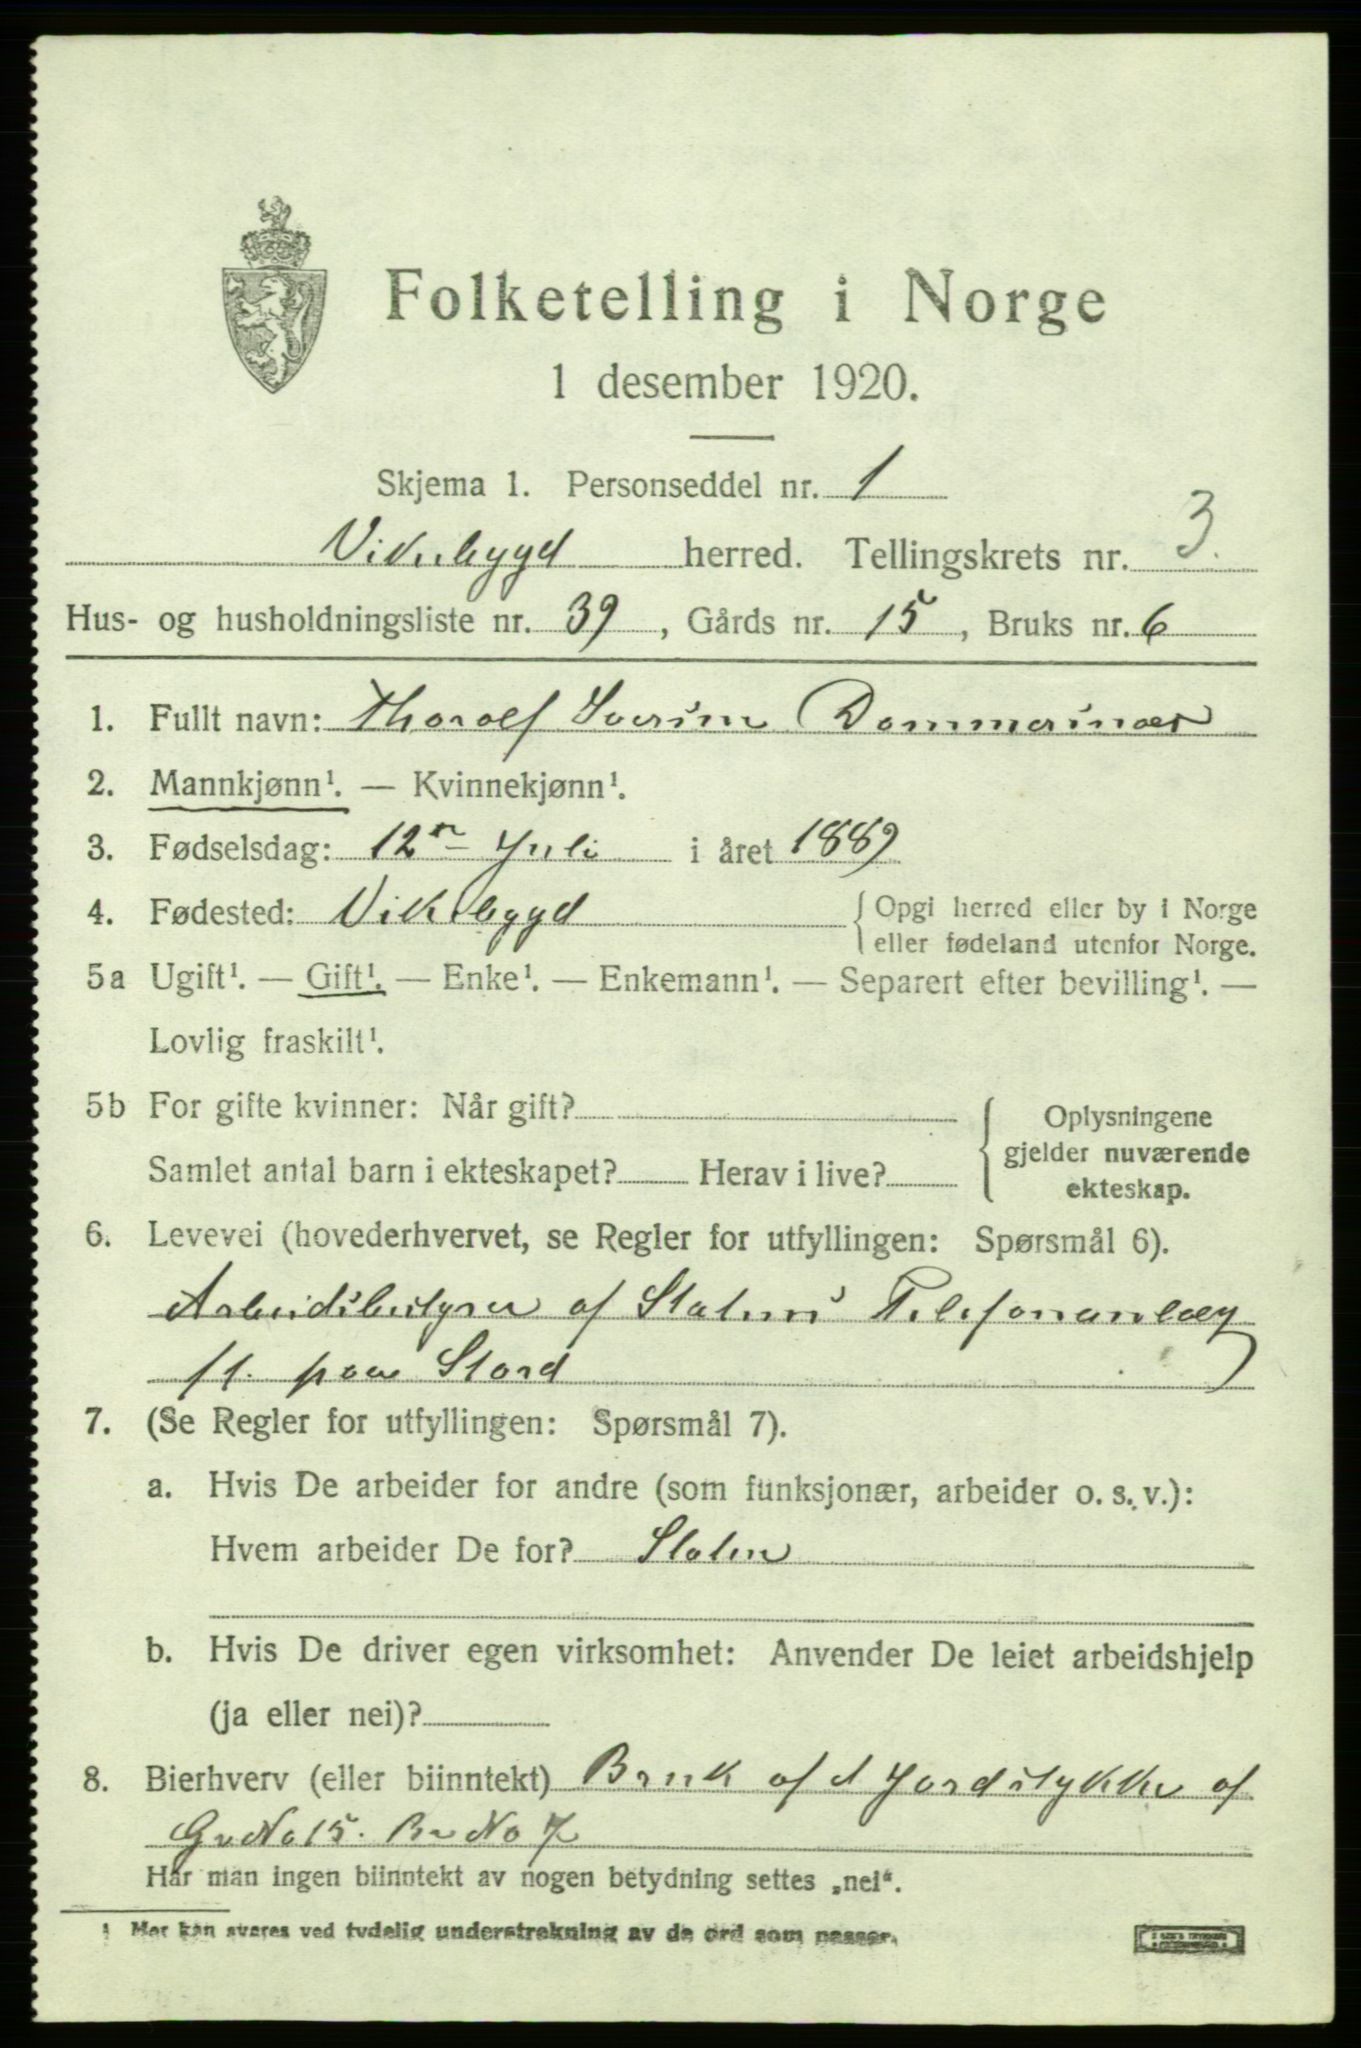 Folketelling i Norge
1 desember 1920.
Skjema 1. Personseddel nr. 1
Vikebygd herred. Tellingskrets nr. 3.
Hus- og husholdningsliste nr. 39, Gårds nr. 15, Bruks nr. 6
1. Fullt navn: Thorolf Severin Dommersnæs
2. Mannkjønn¹. — Kvinnekjønn¹.
3. Fødselsdag: 12n Juli i året 1889
4. Fødested: Vikebygd { Opgi herred eller by i Norge
eller fødeland utenfor Norge.
5a Ugift¹. — Gift¹. — Enke¹. — Enkemann¹. — Separert efter bevilling¹. —
Lovlig fraskilt¹.
5b For gifte kvinner: Når gift?
Samlet antal barn i ekteskapet? Herav i live?
{ Oplysningene
gjelder nuværende
ekteskap.
6. Levevei (hovederhvervet, se Regler for utfyllingen: Spørsmål 6).
Arbeidsbestyrer af Statens Telefonanlæg
ft. paa Stord
7. (Se Regler for utfyllingen: Spørsmål 7).
a. Hvis De arbeider for andre (som funksjonær, arbeider o. s. v.):
Hvem arbeider De for? Staten
b. Hvis De driver egen virksomhet: Anvender De leiet arbeidshjelp
(ja eller nei)?
8. Bierhverv (eller biinntekt) Bruk af et Jordstykke af
G No 15. Br No 7
Har man ingen biinntekt av nogen betydning settes „nei“.
¹ Her kan svares ved tydelig understrekning av de ord som passer.